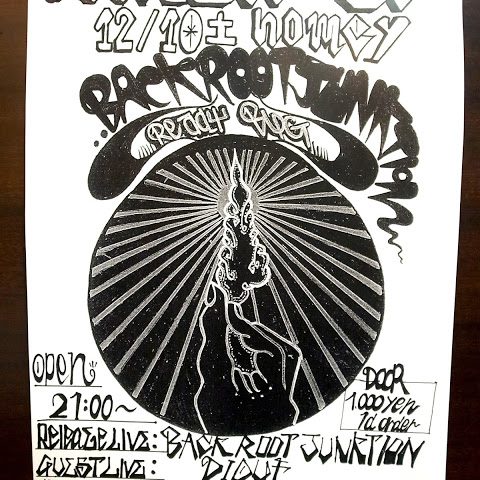 12/10土 homey
BACKROOTJUNKTION
OPEN
21:00~
DOOR
1.000yen
1d order
RELEASE LIVE: BACK ROOT JUNKTION
GUEST LIVE: DIGUF